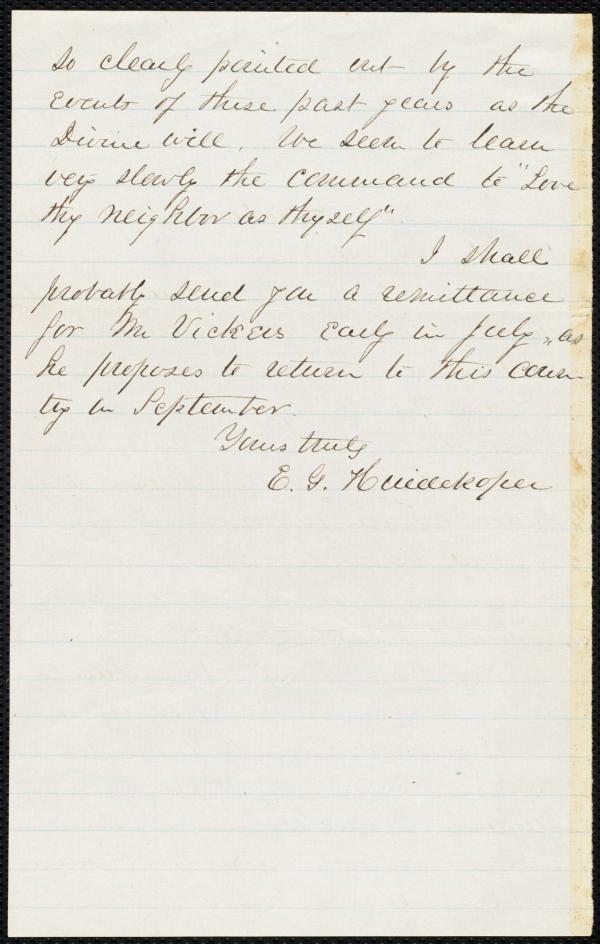 so clearly pointed out by the
events of these past years as the
Divine will. We seem to learn
very slowly the command to "Love
thy neighbor as thyself".
I shall
probably send you a remittance
for Mr Vickers early in July, as
he proposes to return to this coun-
try in September.
Yours truly
E. G. Huidekoper